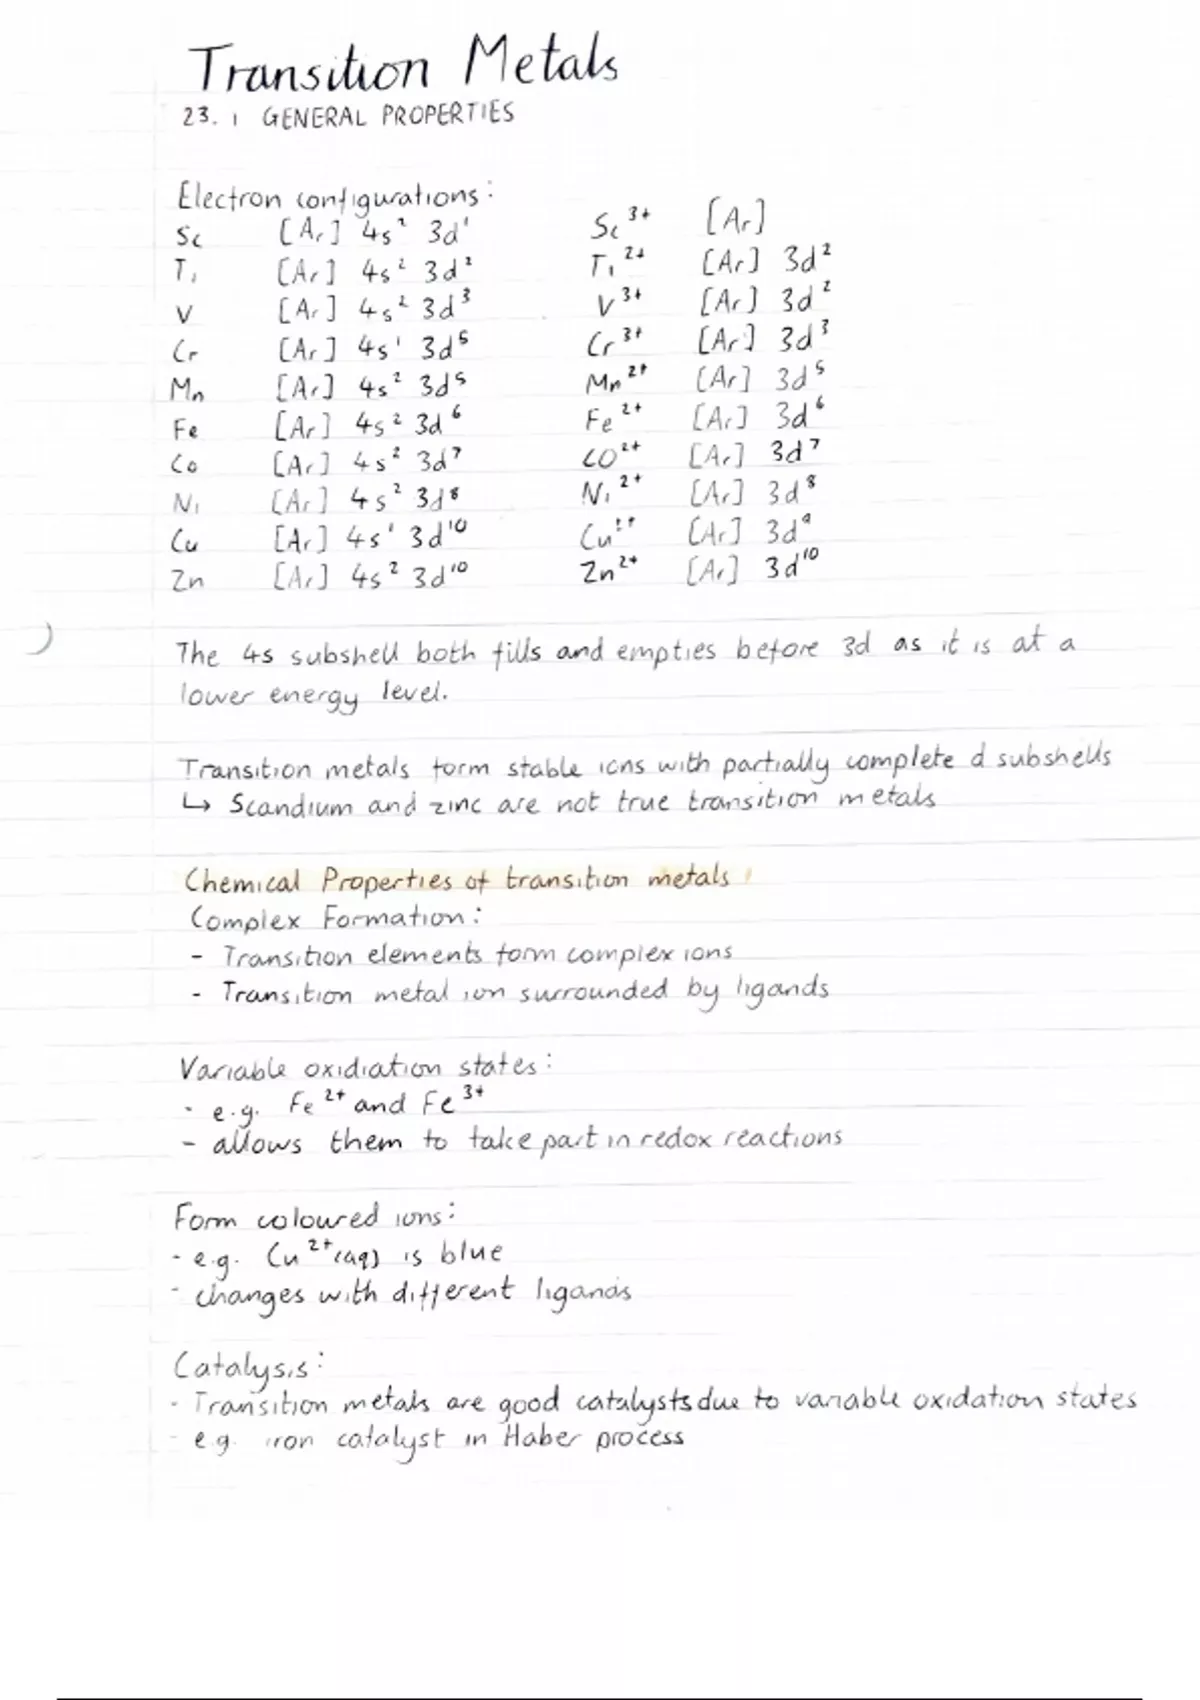 Transition Metals
23.1 GENERAL PROPERTIES
Electron configurations:
Sc [Ar] 4s² 3d¹ Sc³⁺ [Ar]
Ti [Ar] 4s² 3d² Ti²⁺ [Ar] 3d²
V [Ar] 4s² 3d³ V³⁺ [Ar] 3d²
Cr [Ar] 4s¹ 3d⁵ Cr³⁺ [Ar] 3d³
Mn [Ar] 4s² 3d⁵ Mn²⁺ [Ar] 3d⁵
Fe [Ar] 4s² 3d⁶ Fe²⁺ [Ar] 3d⁶
Co [Ar] 4s² 3d⁷ CO²⁺ [Ar] 3d⁷
Ni [Ar] 4s² 3d⁸ Ni²⁺ [Ar] 3d⁸
Cu [Ar] 4s¹ 3d¹⁰ Cu²⁺ [Ar] 3d⁹
Zn [Ar] 4s² 3d¹⁰ Zn²⁺ [Ar] 3d¹⁰
The 4s subshell both fills and empties before 3d as it is at a
lower energy level.
Transition metals form stable ions with partially complete d subshells
↳ Scandium and zinc are not true transition metals
Chemical Properties of transition metals
Complex Formation:
- Transition elements form complex ions
- Transition metal ion surrounded by ligands
Variable oxidiation states:
- e.g. Fe²⁺ and Fe³⁺
- allows them to take part in redox reactions
Form coloured ions:
- e.g. Cu²⁺(aq) is blue
- changes with different ligands
Catalysis:
- Transition metals are good catalysts due to variable oxidation states
- e.g. iron catalyst in Haber process